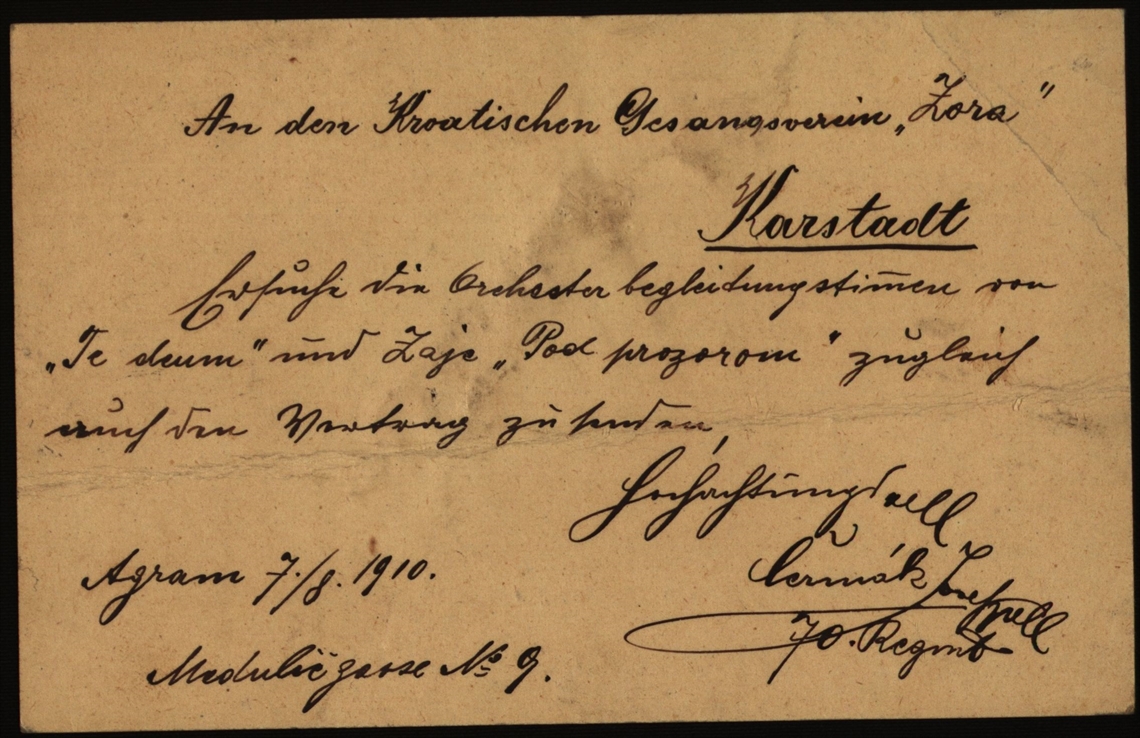 An den Kroatischen Gesangsverein „Zora"
Karstadt
Ersuche die Orchesterbegleitungstim̅en von
„Te deum" und Zajc „Pod prozorom" zugleich
auch den Vertrag zu senden,
Hochachtungsvoll
Čermák Josef
Agram 7./8. 1910.
70. Regmt
Medulićgasse № 9.